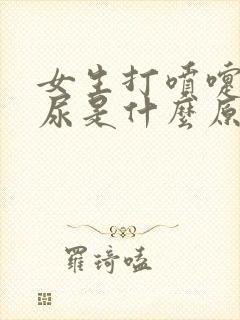 女生打噴嚏
尿是什麼原
羅琦嗑